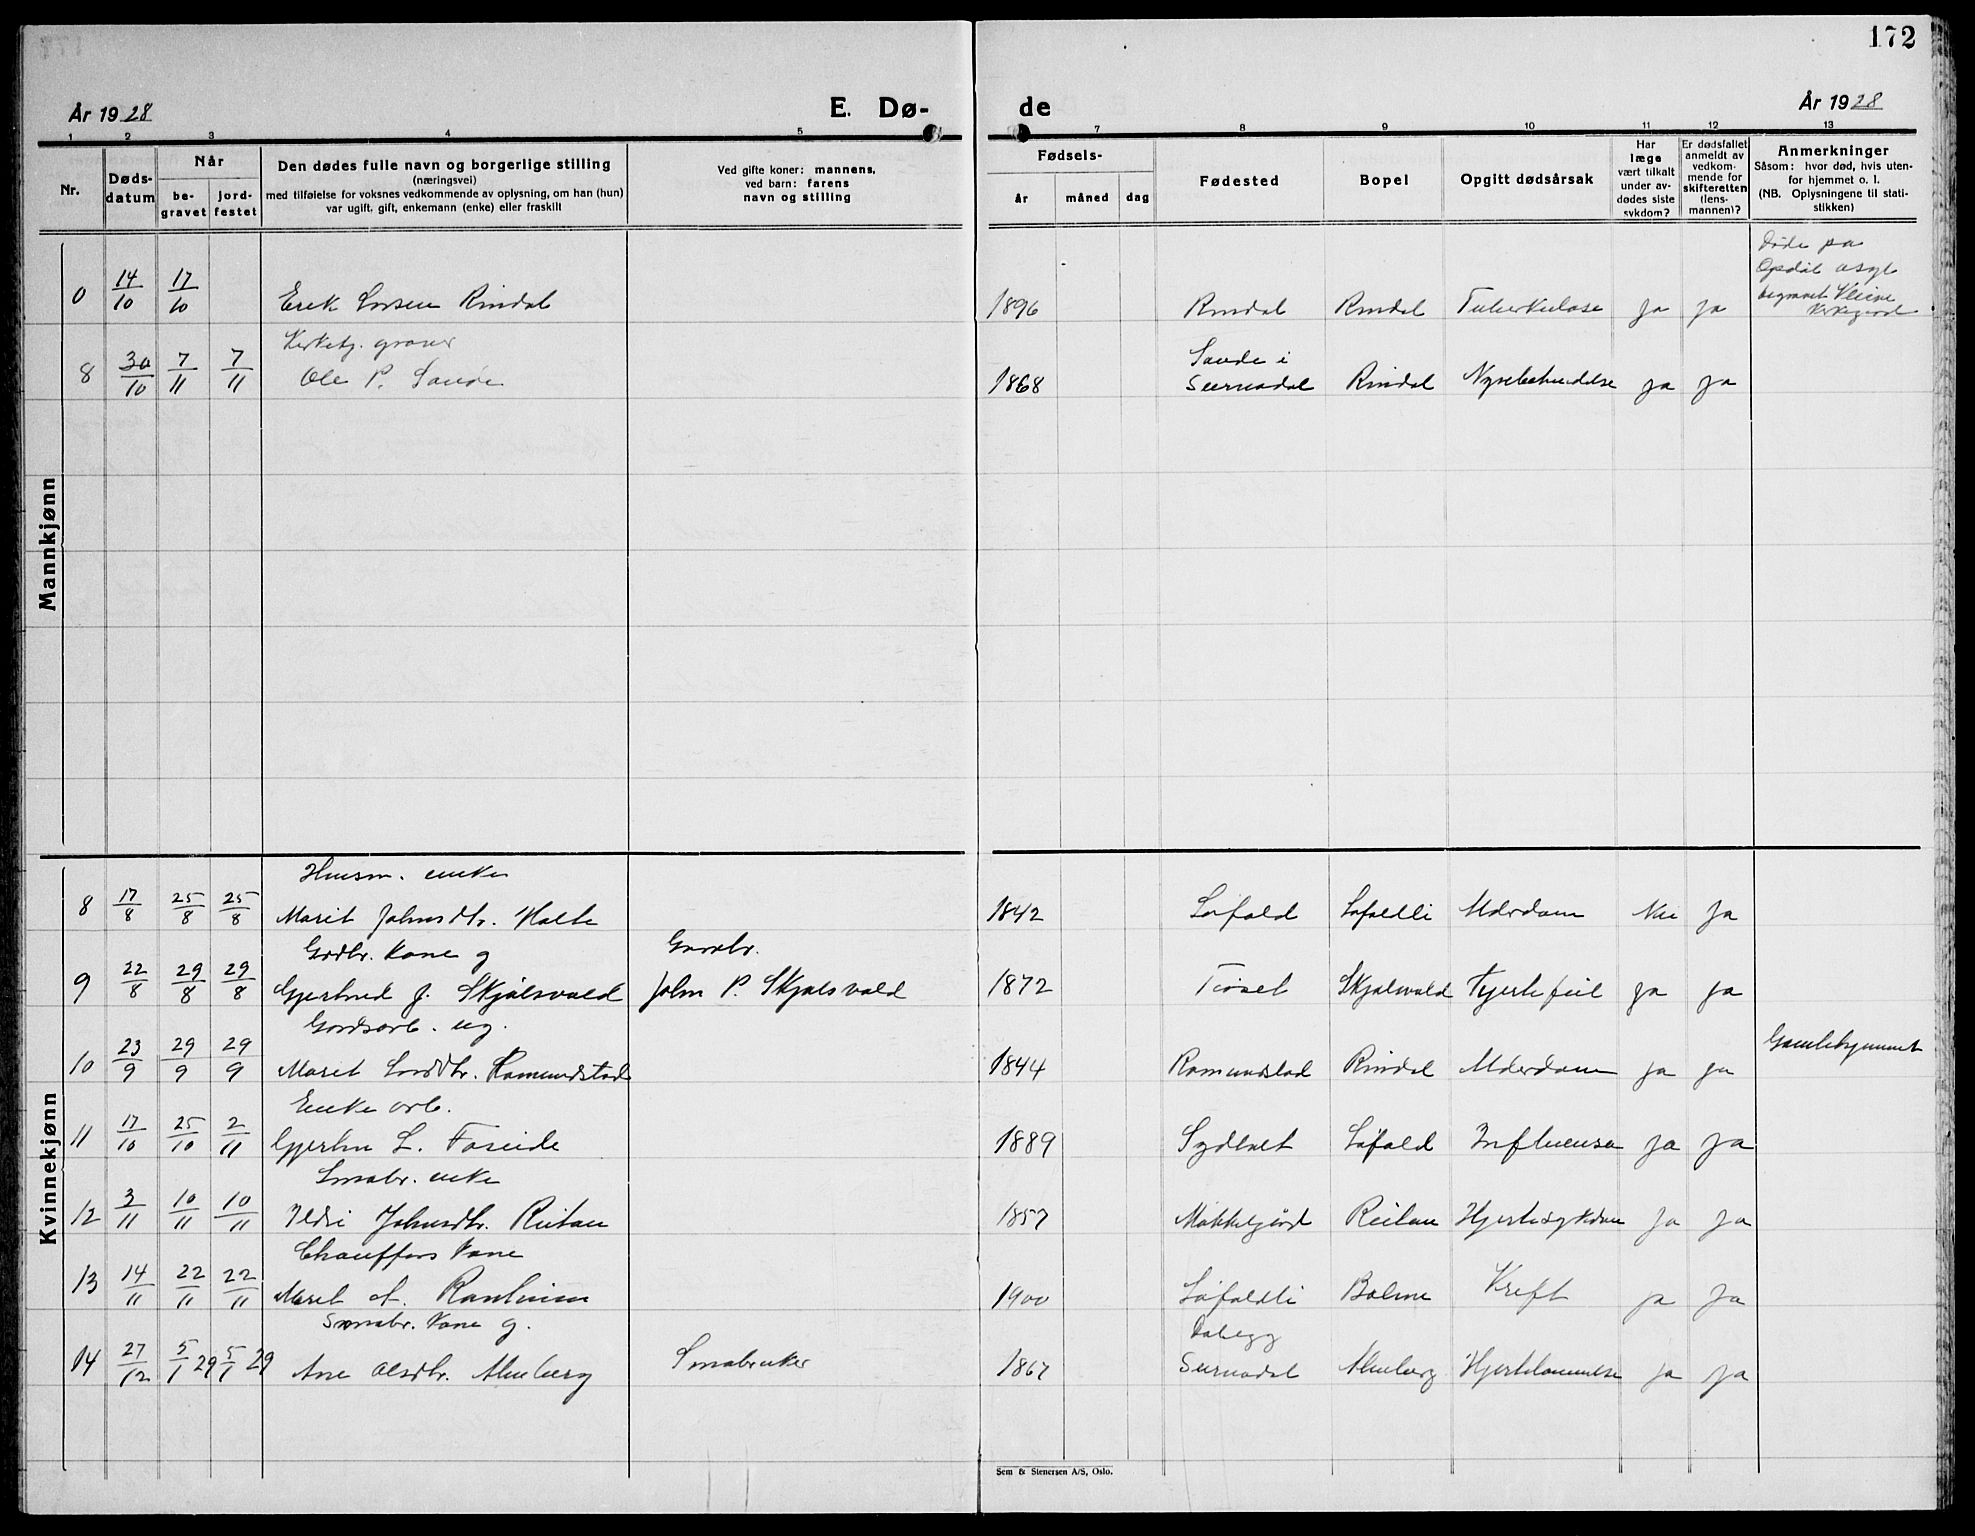 172
År 1928
E. Dø-
de
År 1928
1 2 3 4 5 7 8 9 10 11 12 13
Nr.
Døds-
datum
Når
be-
gravet
jord-
festet
Den dødes fulle navn og borgerlige stilling
(næringsvei)
med tilføielse for voksnes vedkommende av oplysning, om han (hun)
var ugift, gift, enkemann (enke) eller fraskilt
Ved gifte koner: mannens,
ved barn: farens
navn og stilling
Fødsels-
år måned dag
Fødested
Bopel
Opgitt dødsårsak
Har
læge
vært tilkalt
under av-
dødes siste
sykdom?
Er dødsfallet
anmeldt av
vedkom-
mende for
skifteretten
(lens-
mannen)?
Anmerkninger
Såsom: hvor død, hvis uten-
for hjemmet o. l.
(NB. Oplysningene til stati-
stikken)
Mannkjønn
Døde pa
Opdøl asyl
begravet Kleive
Kirkegård
0 14/10 17/10 Erek Larsen Rindal 1896 Rindal Rindal Tuberkulose ja ja
Kirketj. graver
Sande i
8 30/10 7/11 7/11 Ole P. Sande 1868 Surnadal Rindal Nyrebetendelse ja ja
Kvinnekjønn
Husm. enke
8 17/8 25/8 25/8 Marit Johnsdtr. Halte 1842 Løfald Løfaldli Alderdom Nei Ja
Gardbr. kone g Gardbr.
9 22/8 29/8 29/8 Gjertrud J. Skjølsvold John P. Skjølsvold 1872 Tiøset Skjølsvold Hjertefeil ja ja
Gardsarb. ug.
Gamlehjemmet
10 23/9 29/9 29/9 Marit Larsdtr. Romundstad 1844 Romundstad Rindal Alderdom ja ja
Enke arb.
11 17/10 25/10 2/11 L. Foseide 1889 Løfald Influensa ja ja
Smabr. enke
12 3/11 10/11 10/11 Ildri Johnsdtr. Reitan 1857 Møkkelgård Reitan Hjertesykdom ja ja
Chaufførs kone
13 14/11 22/11 22/11 Marit A. Ranheim 1900 Løfaldli Bolme Kreft ja ja
Smabr. kone g.
14 27/12 5/1 29 5/1 29 Ane Olsdtr. Almberg Smabruker 1867 Surnadal Almberg Hjertelammelse ja ja
Sem & Stenersen A/S, Oslo.